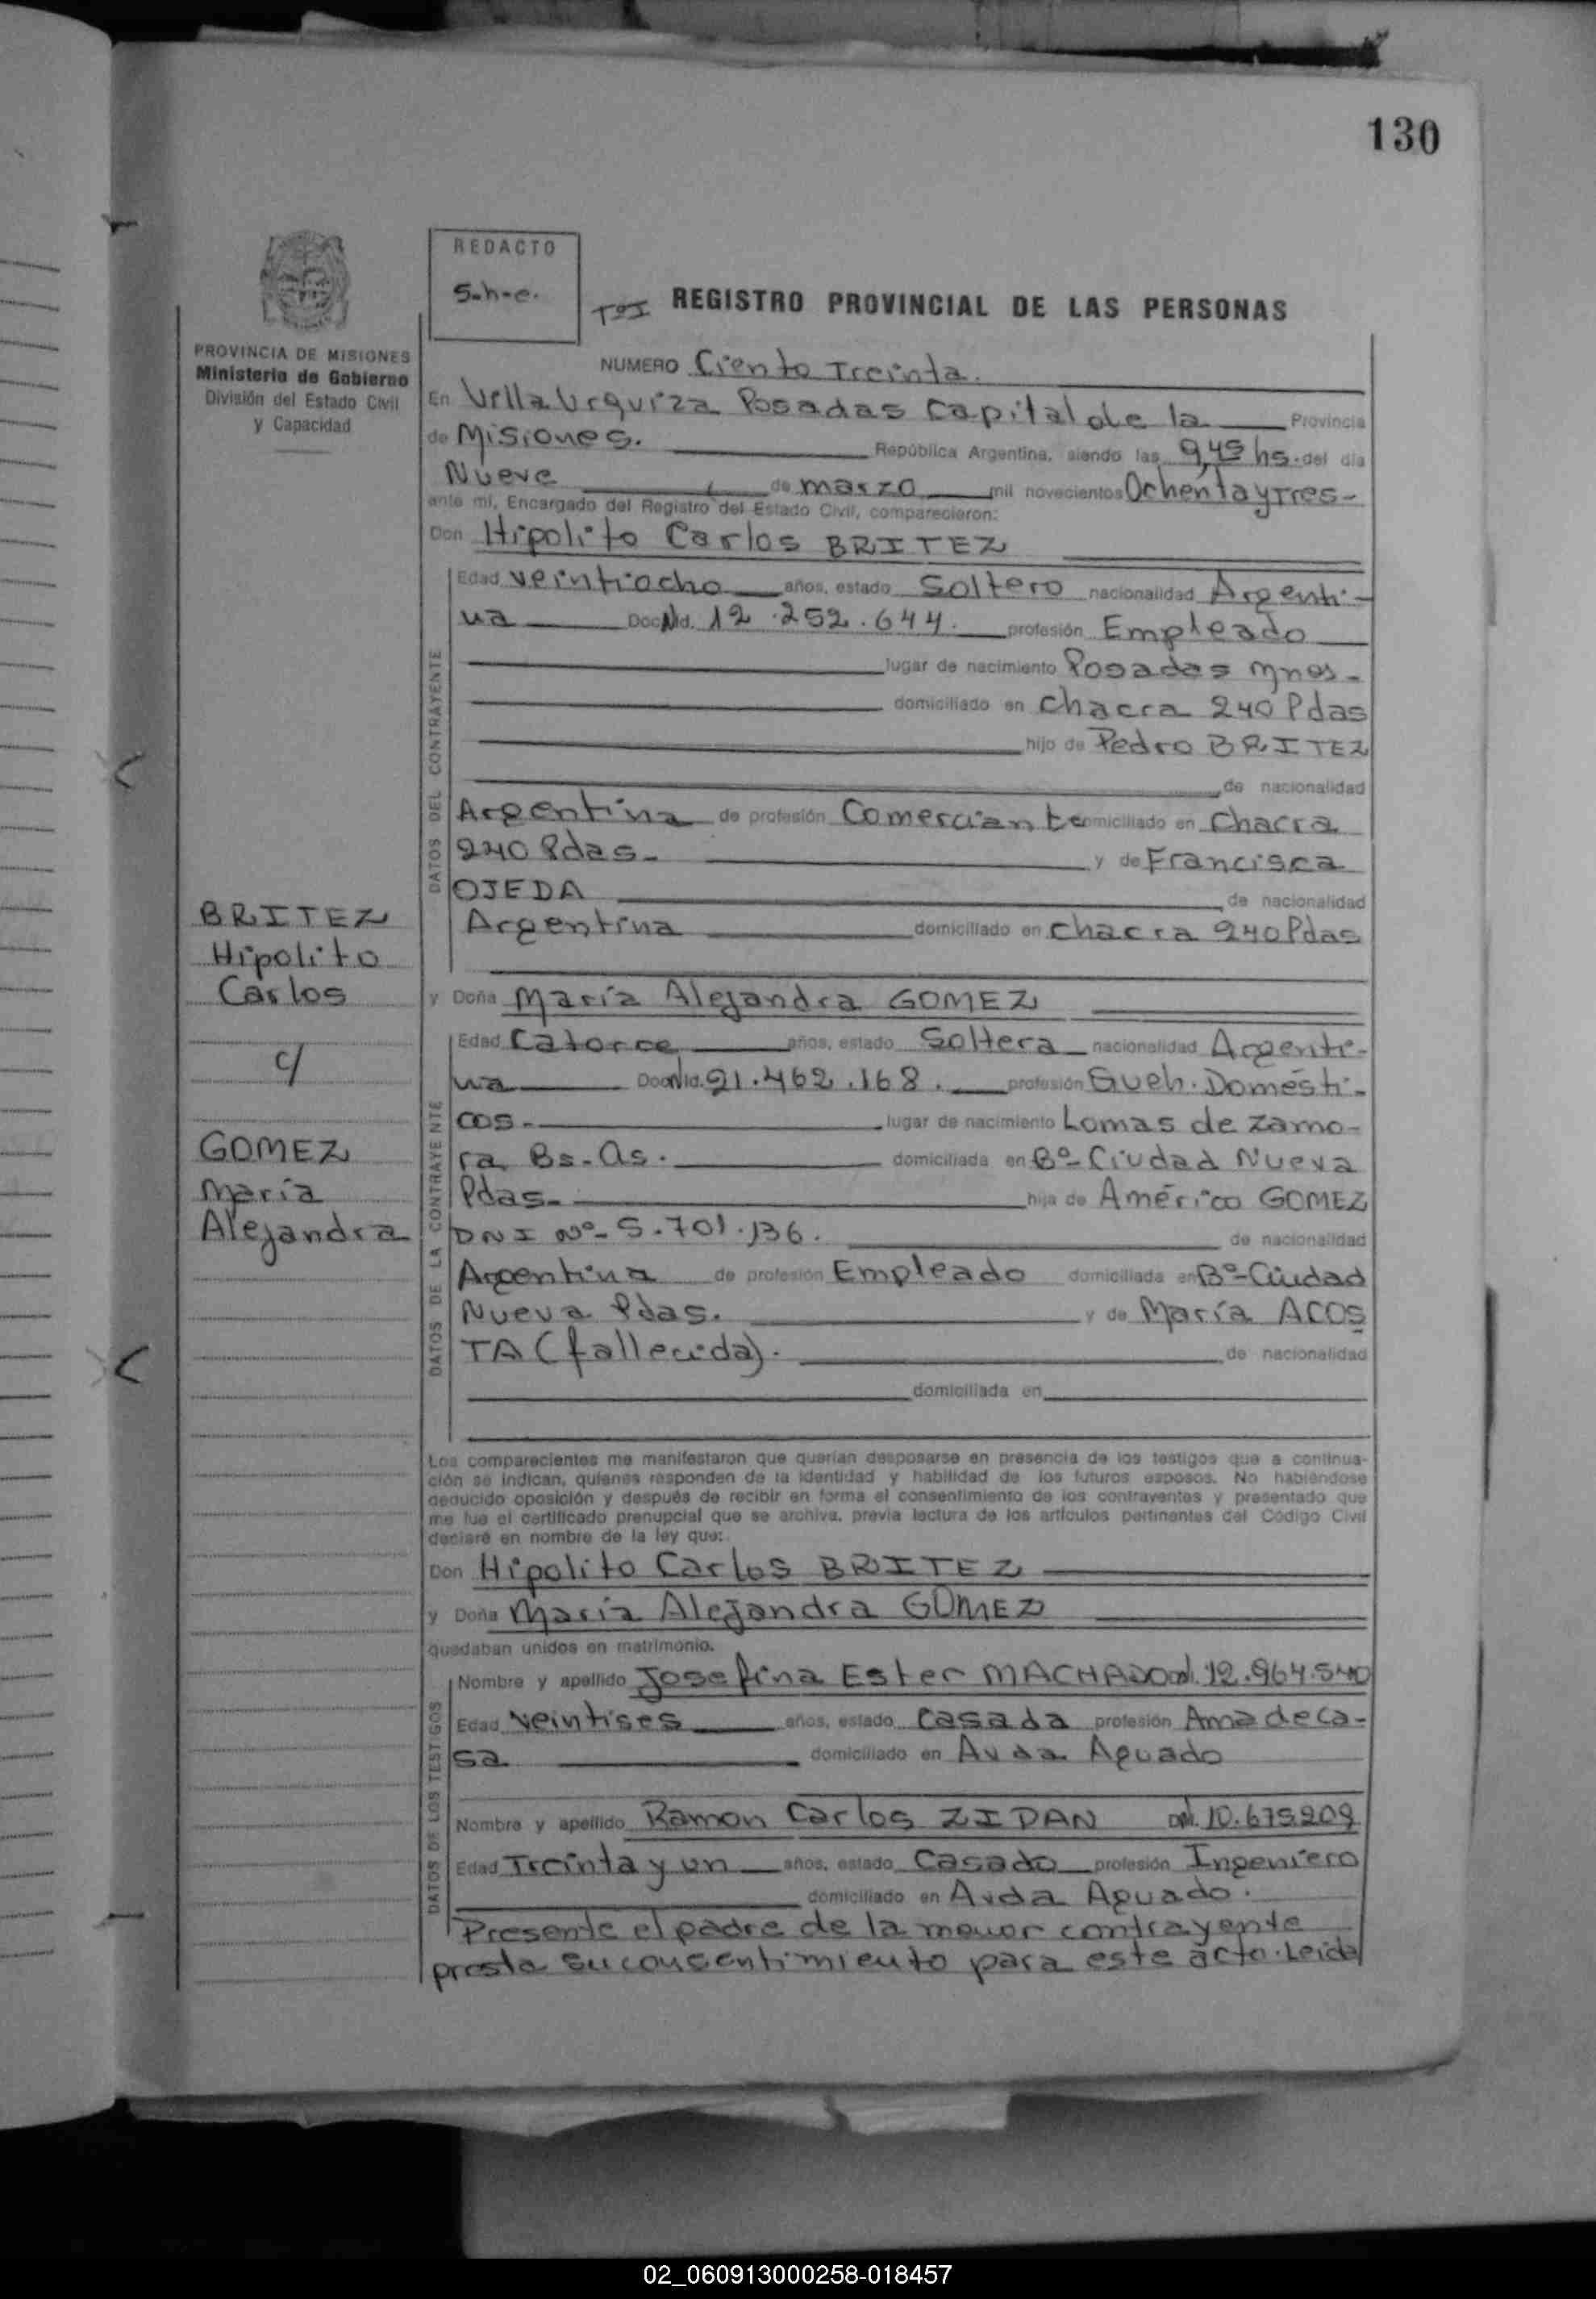 130
REDACTO
S-h-e.
TºI REGISTRO PROVINCIAL DE LAS PERSONAS
PROVINCIA DE MISIONES
Ministerio de Gobierno
División del Estado Civil
y Capacidad
NUMERO Ciento Treinta.
En Villa Urquiza Posadas Capital de la Provincia
de Misiones. República Argentina, siendo las 9,45 hs. del día
Nueve de marzo mil novecientos Ochenta y Tres-
ante mí, Encargado del Registro del Estado Civil, comparecieron:
Don Hipolito Carlos BRITEZ
DATOS DEL CONTRAYENTE
Edad veintiocho años, estado Soltero nacionalidad Argenti-
na Doc. Nid. 12.252.644. profesión Empleado
lugar de nacimiento Posadas Mnes-
domiciliado en Chacra 240 Pdas
hijo de Pedro BRITEZ
de nacionalidad
Argentina de profesión Comerciante domiciliado en Chacra
240 Pdas- y de Francisca
OJEDA de nacionalidad
Argentina domiciliado en Chacra 240 Pdas
BRITEZ
Hipolito
Carlos
c/
GOMEZ
María
Alejandra
y Doña María Alejandra GOMEZ
DATOS DE LA CONTRAYENTE
Edad Catorce años, estado Soltera nacionalidad Argenti-
na Doc. Nid. 21.462.168. profesión Queh. Domésti-
cos- lugar de nacimiento Lomas de Zamo-
ra Bs-As. domiciliada en Bº- Ciudad Nueva
Pdas- hija de Américo GOMEZ
DNI Nº- 5.701.136. de nacionalidad
Argentina de profesión Empleado domiciliada en Bº-Ciudad
Nueva Pdas. y de María ACOS
TA (fallecida). de nacionalidad
domiciliada en
Los comparecientes me manifestaron que querían desposarse en presencia de los testigos que a continua-
ción se indican, quienes responden de la identidad y habilidad de los futuros esposos. No habiéndose
deducido oposición y después de recibir en forma el consentimiento de los contrayentes y presentado que
me fue el certificado prenupcial que se archiva, previa lectura de los artículos pertinentes del Código Civil
declaré en nombre de la ley que:
Don Hipolito Carlos BRITEZ
y Doña María Alejandra GOMEZ
quedaban unidos en matrimonio.
DATOS DE LOS TESTIGOS
Nombre y apellido Josefina Ester MACHADO 12.964.540
Edad veintises años, estado Casada profesión Ama de ca-
sa domiciliado en Avda Aguado
Nombre y apellido Ramon Carlos ZIDAN DNI. 10.675.209
Edad Treinta y un años, estado Casado profesión Ingeniero
domiciliado en Avda Aguado.
Presente el padre de la menor contrayente
presta su consentimiento para este acto. Leida
02_060913000258-018457